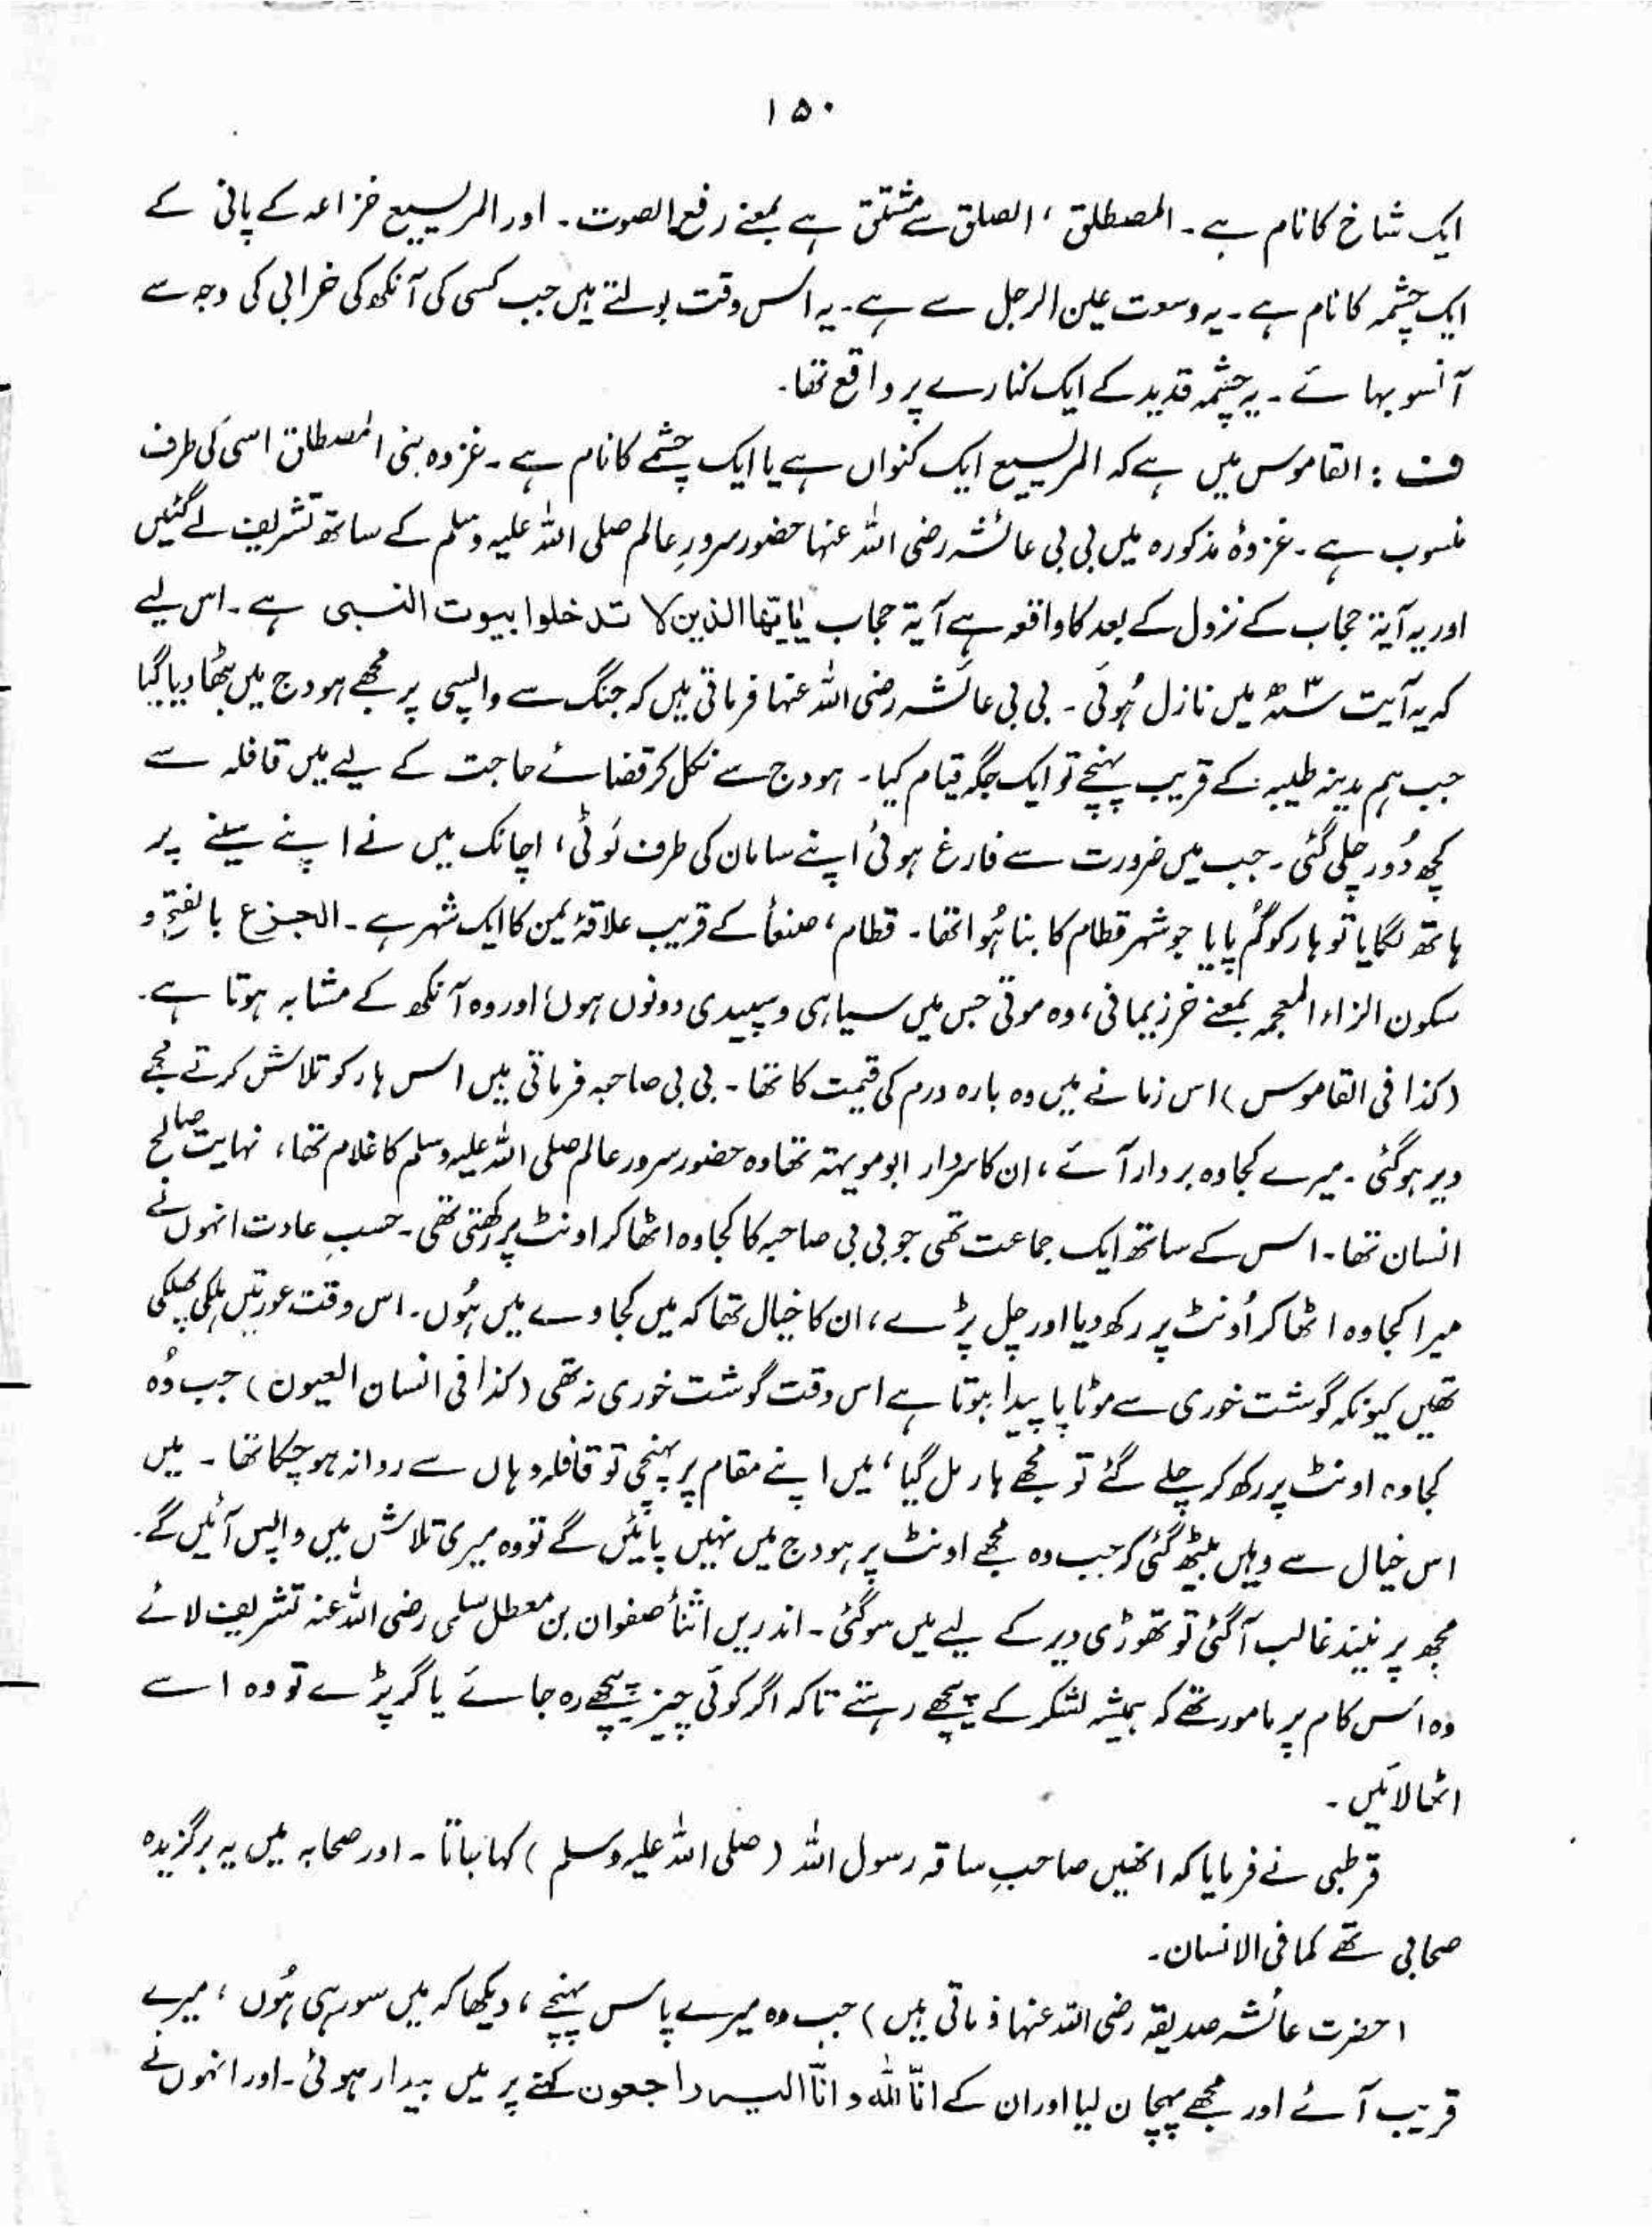 ۱۵۰
ایک شاخ کا نام ہے۔ المصطلق، الصلق سے مشتق ہے بمعنے رفع الصوت۔ اور المریسیع خزاعہ کے پانی کے
ایک چشمہ کا نام ہے۔ یہ وسعت عین الرجل سے ہے۔ یہ اس وقت بولتے ہیں جب کسی کی آنکھ کی خرابی کی وجہ سے
آنسو بہائے۔ یہ چشمہ قدید کے ایک کنارے پر واقع تھا۔
ف : القاموس میں ہے کہ المریسیع ایک کنواں ہے یا ایک چشمے کا نام ہے۔ غزوہ بنی المصطلق اسی کی طرف
منسوب ہے۔ غزوۂ مذکورہ میں بی بی عائشہ رضی اللہ عنہا حضور سرورِ عالم صلی اللہ علیہ وسلم کے ساتھ تشریف لے گئیں
اور یہ آیۃ حجاب کے نزول کے بعد کا واقعہ ہے آیۃ حجاب یٰایھا الذین لا تدخلوا بیوت النبی ہے۔ اس لیے
کہ یہ آیت ۳ھ میں نازل ہُوئی۔ بی بی عائشہ رضی اللہ عنہا فرماتی ہیں کہ جنگ سے واپسی پر مجھے ہودج میں بٹھا دیا گیا
جب ہم مدینہ طیبہ کے قریب پہنچے تو ایک جگہ قیام کیا۔ ہودج سے نکل کر قضائے حاجت کے لیے میں قافلہ سے
کچھ دُور چلی گئی۔ جب میں ضرورت سے فارغ ہوئی اپنے سامان کی طرف لَوٹی، اچانک میں نے اپنے سینے پر
ہاتھ لگایا تو ہار کو گُم پایا جو شہر قطام کا بنا ہُوا تھا۔ قطام، صنعأ کے قریب علاقۂ یمن کا ایک شہر ہے۔ الجزع بالفتح و
سکون الزاء المعجمہ بمعنے خرز یمانی، وہ موتی جس میں سیاہی و سپیدی دونوں ہوں اور وہ آنکھ کے مشابہ ہوتا ہے۔
(کذا فی القاموس) اس زمانے میں وہ بارہ درم کی قیمت کا تھا۔ بی بی صاحبہ فرماتی ہیں اس ہار کو تلاش کرتے مجھے
دیر ہوگئی۔ میرے کجاوہ بردار آئے، ان کا سردار ابو مویہتہ تھا وہ حضور سرور عالم صلی اللہ علیہ وسلم کا غلام تھا، نہایت صالح
انسان تھا۔ اس کے ساتھ ایک جماعت تھی جو بی بی صاحبہ کا کجاوہ اٹھا کر اونٹ پر رکھتی تھی۔ حسبِ عادت انہوں نے
میرا کجاوہ اٹھا کر اُونٹ پر رکھ دیا اور چل پڑے، ان کا خیال تھا کہ میں کجاوے میں ہُوں۔ اس وقت عورتیں ہلکی پھلکی
تھیں کیونکہ گوشت خوری سے موٹاپا پیدا ہوتا ہے اس وقت گوشت خوری نہ تھی (کذا فی انسان العیون) جب وُہ
کجاوہ اونٹ پر رکھ کر چلے گئے تو مجھے ہار مل گیا، میں اپنے مقام پر پہنچی تو قافلہ وہاں سے روانہ ہو چکا تھا۔ میں
اس خیال سے وہیں بیٹھ گئی کہ جب وہ مجھے اونٹ پر ہودج میں نہیں پائیں گے تو وہ میری تلاش میں واپس آئیں گے۔
مجھ پر نیند غالب آگئی تو تھوڑی دیر کے لیے میں سوگئی۔ اندریں اثنأ صفوان بن معطل سلمی رضی اللہ عنہ تشریف لائے
وہ اس کام پر مامور تھے کہ ہمیشہ لشکر کے پیچھے رہتے تاکہ اگر کوئی چیز پیچھے رہ جائے یا گر پڑے تو وہ اسے
اٹھا لائیں۔
قرطبی نے فرمایا کہ انھیں صاحبِ ساقہ رسول اللہ (صلی اللہ علیہ وسلم) کہا جاتا۔ اور صحابہ میں یہ برگزیدہ
صحابی تھے کما فی الانسان۔
(حضرت عائشہ صدیقہ رضی اللہ عنہا فرماتی ہیں) جب وہ میرے پاس پہنچے، دیکھا کہ میں سو رہی ہُوں، میرے
قریب آئے اور مجھے پہچان لیا اور ان کے انّا للہ و انّا الیہ راجعون کہنے پر میں بیدار ہوئی۔ اور انہوں نے